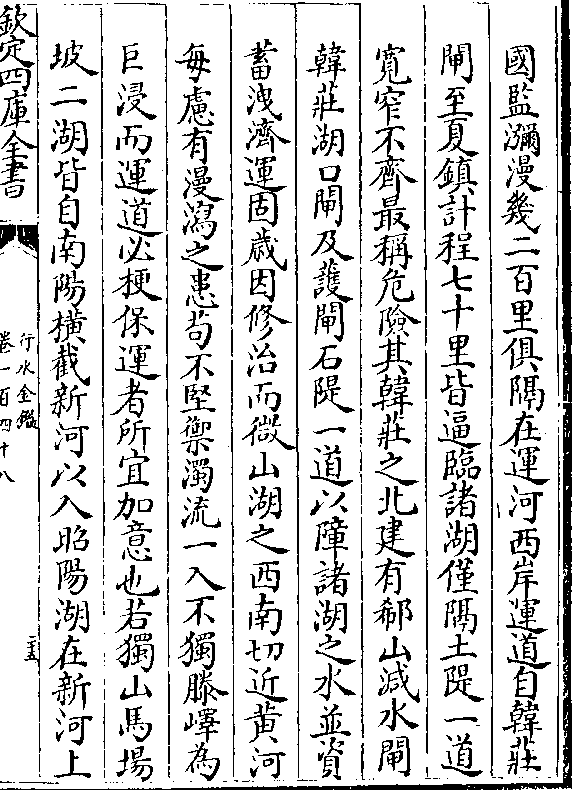 國監瀰漫幾二百里俱隔在運河西岸運道自韓莊
閘至夏鎮計程七十里皆逼臨諸湖僅隔土隄一道
寛窄不齊最稱危險其韓莊之北建有郗山減水閘
韓莊湖口閘及護閘石隄一道以障諸湖之水並資
蓄洩濟運固歳因修治而微山湖之西南切近黄河
每慮有漫瀉之患茍不堅禦濁流一入不獨滕嶧為
巨浸而運道必梗保運者所宜加意也若獨山馬場
坡二湖皆自南陽橫截新河以入昭陽湖在新河上
欽定四庫全書
行水金鑑
卷一百四十八
二五